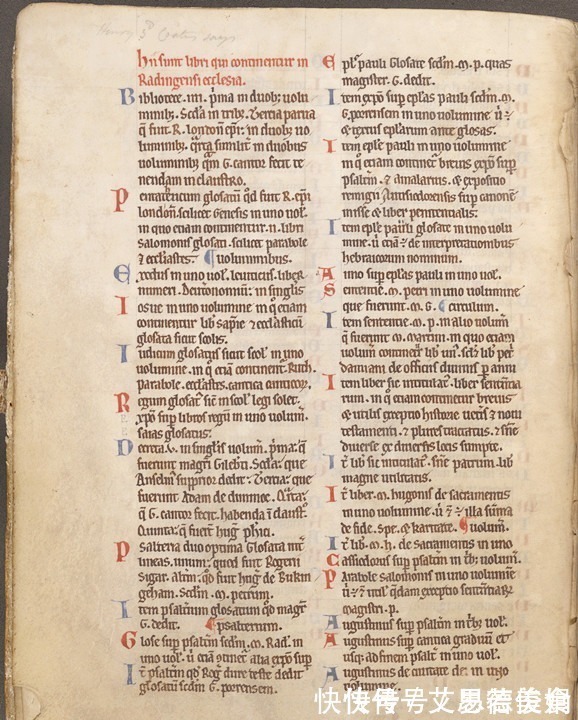 Hii sunt libri qui continentur in
Radingensi ecclesia.
Bibliotece .iiii. p̄ma in duob; uolu
minib;. Sc̄da in trib;. Tercia parua
q̄ fuit .R. london̄ ep̄i: in duob; uo
luminib;. q̄rta similit̄ in duobus
uoluminib; qm̄ G. cantor fecit te
nendam in claustro.
Pentateucum glosatū qd̄ fuit R. ep̄i
london̄. scilicet Genesis in uno uol'.
in quo etiam continentur .ii. libri
salomonis glosati. scilicet parabole
⁊ eccl'astes. uoluminibus.
Exodus in uno uol'. leuiticus. liber
numeri. Deutronomiū: in singlis
Iosue in uno uolumine in q̊ etiam
continentur lib' sapīe ⁊ eccl'asticū
glosata sicut scolis.
Iudicum glosatus sicut scol' in uno
uolumine. in q̊ etiā continent̄ Ruth.
parabole. eccl'astes. cantica canticoꝝ.
Regum glosat' sic̄ in scol' legi solet.
expō sup libros regū in uno uolum̄.
saias glosatus.
Decreta .v. in singlis uolum̄. p̄ma: q̄
fuerunt magr̄i Gileb'ti. Sc̄da: que
Anselm' supprior dedit. Tercia: que
fuerunt Adam de dunmoe. Q̄rta:
q̄ G. cantor fecit. habenda ī claustr̊.
Quinta: q̄ fuer̄t hug̊. phici.
Psalteria duo optima Glosata int̄
lineas. unum: quod fuit Rogerii
sigar. alt̄m: qd̄ fuit hug̊. de Bukin
geham. Sc̄dm̄ .m. petrum.
Item p̄salt̄ium glosatum qd̄ magr̄
G. dedit. psalterium.
Glose sup psalt̄m sc̄dm̄ .m. Rad'. in
uno uol'. ū etiā ↄtinet̄ alia expō sup
Item psalt̄m qd̄ Rog̊ dure teste dedit
glosatū sc̄dm̄ G. porensem.
Epl's pauli Glosate sc̄dm̄ .m. p. quas
magister .G. dedit.
Item expō sup epl'as pauli sc̄dm̄ .m.
G. porensem in uno uolumine ū ÷
⁊ textus epl'arum ante glosas.
Item epl'e pauli in uno uolumine
in q̊ etiam continet̄ breuis expō sup
psalt̄m. ⁊ amalarius. ⁊ expositio
remigii Antisiodorensis sup canonē
misse ⁊ liber penitentialis.
Item epl'e pauli glosate in uno uolu
mine. ū etiā ÷ de interpretationibus
hebraicorum nominum.
Anno sup epl'as pauli in uno uol'.
Sententie .m. petri in uno uolumine
que fuerunt .m. G. circulum.
Item sentencie .m. p. in alio uolum̄
q̄ fuerunt .m. martini. in quo etiam
uolum̄ continet̄ lib' un'. sc̄d' lib' pet̄
damiani de officiis diuinis p annū
Item liber sic intitulat'. liber sententia
rum. in q̊ etiam continentur breuis
⁊ utilis exceptio historie ueteris ⁊ noui
testamenti. ⁊ plures tractatus. ⁊ sn̄e
diuerse ex diuersis locis sumpte.
It̄ lib' sic intitulat'. sn̄e patrum. lib'
magne utilitatis.
It̄ liber .m. hugonis de sacramentis
in uno uolumine. ū ÷ ⁊ illa sūma
de fide. spe. ⁊ karitate. uolum̄.
It̄ lib'. m. h. de sacramentis in uno
Cassiodorus sup psalt̄m in t̄b; uolum̄.
Parabole salomonis in uno uolumine
ū ÷ ⁊ util' qdam exceptio sententiaꝝ
magistri .p.
Augustinus sup psalt̄m in t̄b; uol'.
Augustinus sup cantica graduū ⁊
usq; ad finem psalt̄ in uno uol'.
Augustinus de ciuitate dei in uno
uolumine.